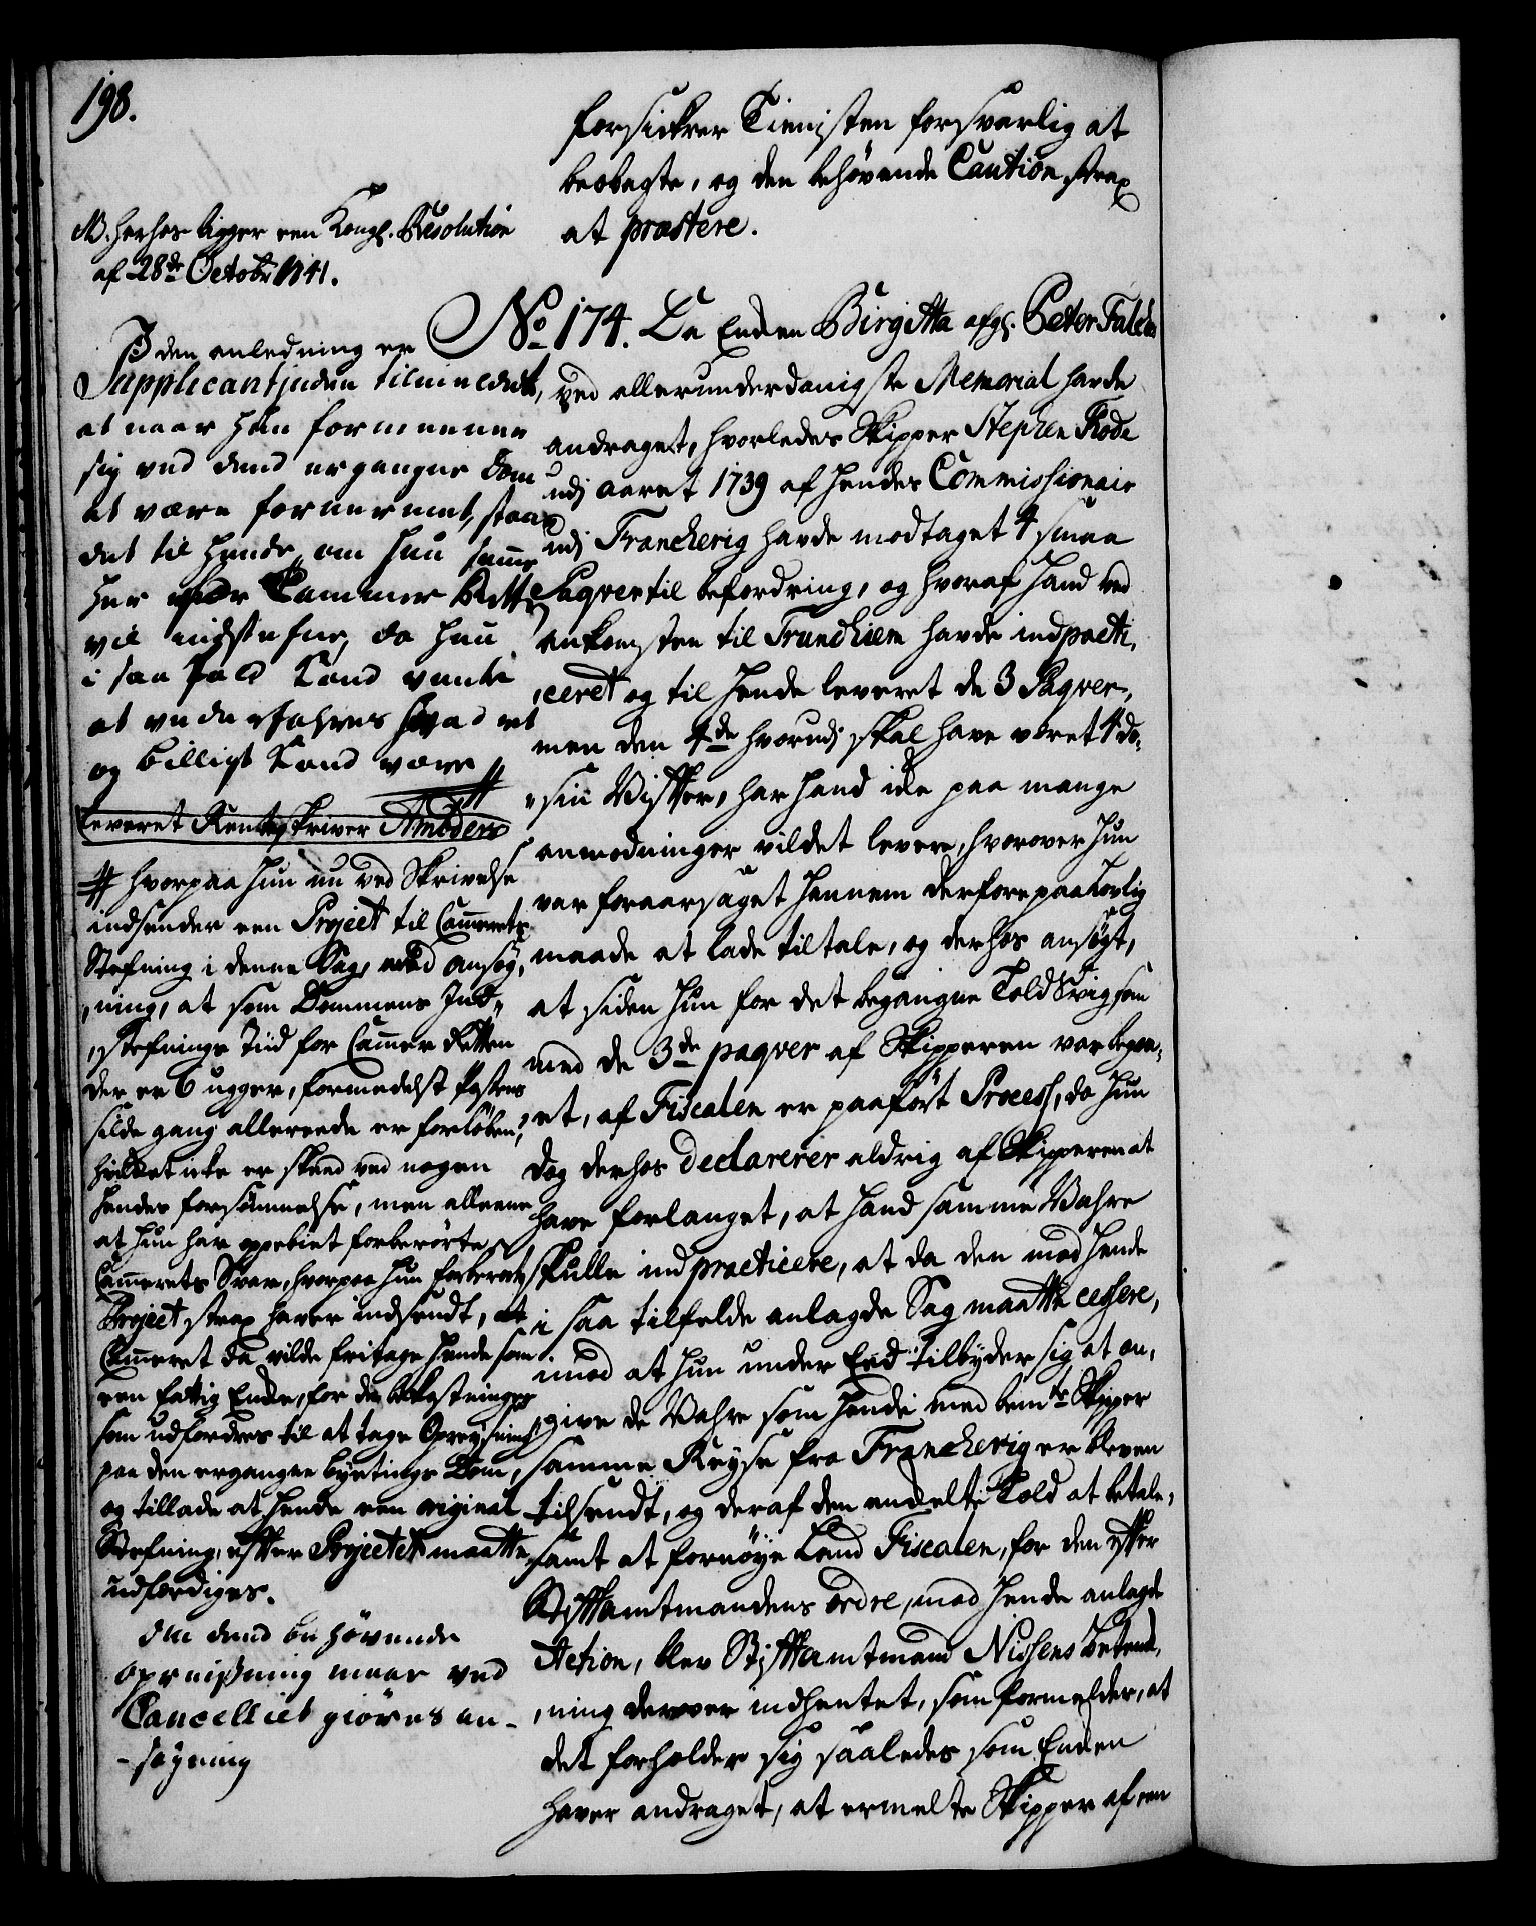 198.
forsickrer Tienisten forsvarlig at
beobagte, og den behøvende Caution strax
at præstere.
NB. herhos ligger een Kongl. Resolution
af 28de Octobr 1741.
No 174. Da Encken Birgitta afgl. Peter Falchs
ved allerunderdanigste Memorial hafde
andraget, hvorledes Skipper Stephen Rode
udj aaret 1739 af hendes Commissionair
udj Franckerig hafde modtaget 4 smaa
Paqver til befordring, og hvoraf hand ved
ankomsten til Trundhiem hafde indpracti¬
,ceret og til hende leveret de 3 Paqver,
men den 4de hvorudj skal have været 4 do¬
„sin Vifter, har hand icke paa mange
anmodninger vildet levere, hvorover hun
var foraarsaget hannem derfore paa Lovlig
maade at lade tiltale, og derhos ansøgt,
at siden hun for det begangne Told Svig som
med de 3de paqver af Skipperen var begaa¬
,et, af Fiscalen er paaført Process, da hun
dog derhos declarerer aldrig af Skipperen at
have forlanget, at hand samme Vahre
skulle indpracticere, at da den mod hende
i saa tilfelde anlagde Sag maatte cessere,
imod at hun under Eed tilbyder sig at an¬
,give de Vahre som hende med bemte Skipper
samme Reyse fra Franckerig er bleven
tilsendt, og deraf den enckelte Told at betale,
samt at fornøye Land Fiscalen, for den efter
Stiftamtmandens ordre, mod hende anlagde
Action, blev Stiftamtmand Nissens Betænk¬
,ning derover indhentet, som formelder, at
det forholder sig saaledes som Encken
haver andraget, at ermelte Skipper af een
J den anledning er
Supplicantinden tilmeldet,
at naar hun formeener
sig ved dend ergangne dom
at være fornermet, staar
det til hende, om hun samme
her for Cammer Retten
vil indstefne, da hun
i saa fald kand vente
at vederfahres hvad ret
og billigt kand være #
leveret Renteskriver Amders
# hvorpaa hun nu ved Skrivelse
indsender een Project til Cammerets
Stefning i denne Sag, med ansøg¬
,ning, at som Dommens Ind¬
,stefnings Tiid for Cammer Retten
der er 6 ugger, formedelst Postens
silde gang allereede er forløben,
hvilket icke er skeed ved nogen
hendes forsømmelse, men alleene
at hun har oppebiet forberørte
Cammerets Svar, hvorpaa hun forberørte
Project strax haver indsendt, at
Cammeret da vilde fritage hende som
een fattig Encke, for de bekostninger
som udfordres til at tage Opreysning
paa den ergangne byetings Dom,
og tillade at hende een original
Stefning, efter Projectet maatte
udfærdiges.
Om dend behøvende
opreisning maae ved
Cancelliet giøres an-
-søgning